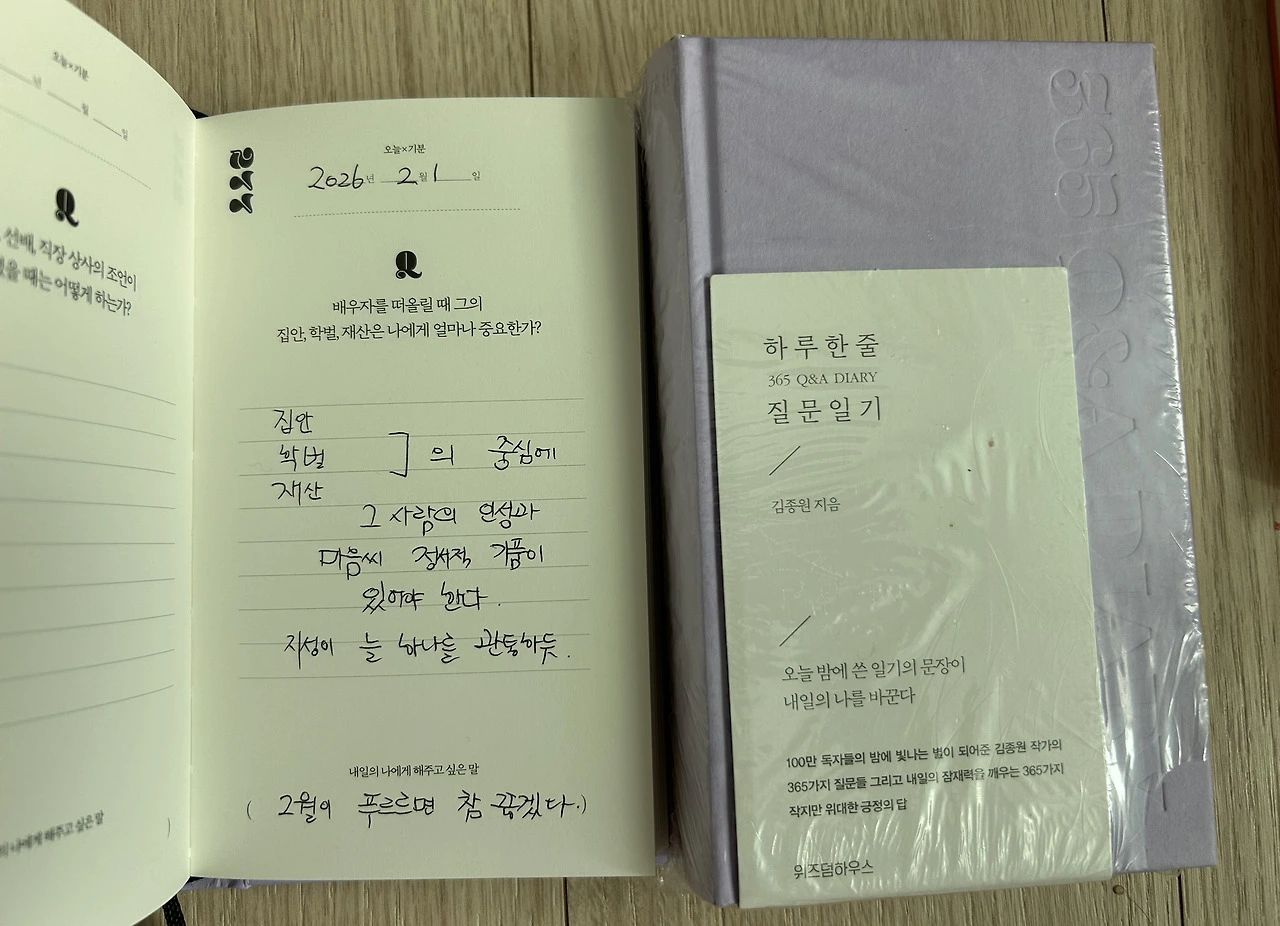 오늘×기분
년 월 일
Q
선배, 직장 상사의 조언이
때는 어떻게 하는가?
에게 해주고 싶은 말
)
오늘×기분
2026년 2월 1일
Q
배우자를 떠올릴 때 그의
집안, 학벌, 재산은 나에게 얼마나 중요한가?
집안
학벌 ] 의 중심에
재산
그 사람의 인성과
마음씨 정서적 기품이
있어야 한다.
지성이 늘 하나를 관통하듯.
내일의 나에게 해주고 싶은 말
( 2월이 푸르르면 참 좋겠다.)
365 Q&A DIARY
하루 한 줄
365 Q&A DIARY
질문일기
김종원 지음
오늘 밤에 쓴 일기의 문장이
내일의 나를 바꾼다
100만 독자들의 밤에 빛나는 별이 되어준 김종원 작가의
365가지 질문들 그리고 내일의 잠재력을 깨우는 365가지
작지만 위대한 긍정의 답
위즈덤하우스